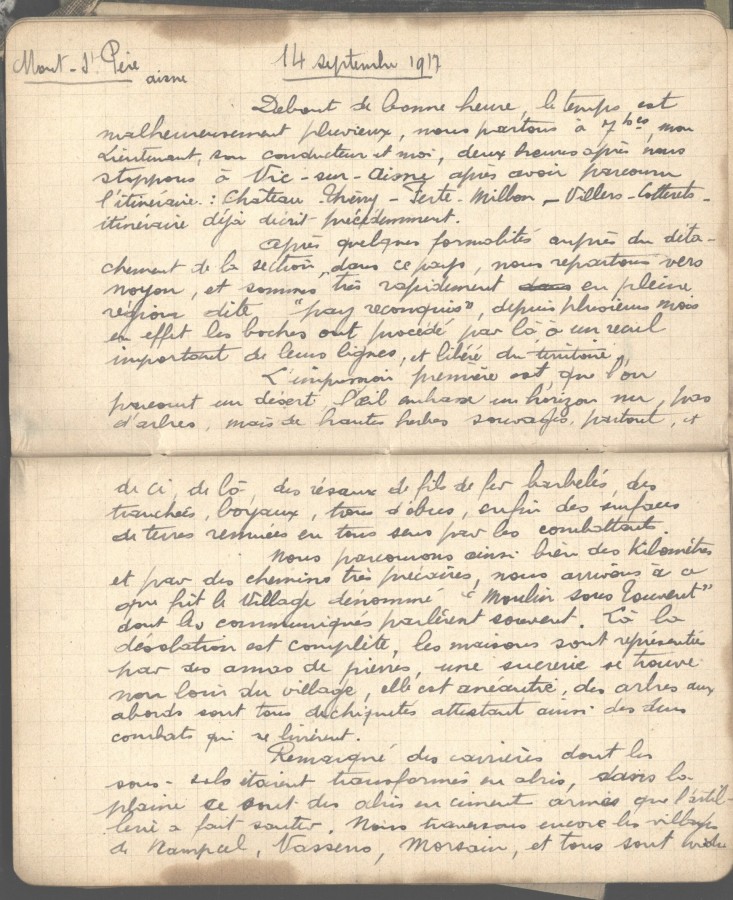 Mont-St Père
aisne
14 septembre 1917
Debout de bonne heure, le temps est
malheureusement pluvieux, nous partons à 7 hes, mon
Lieutenant, son conducteur et moi, deux heures après nous
stoppons à Vic-sur-Aisne après avoir parcouru
l'itinéraire : Château Thierry - Ferté-Millon - Villers-Cotterets -
itinéraire déjà décrit précédemment.
Après quelques formalités auprès du déta-
chement de la section, dans ce pays, nous repartons vers
Noyon, et sommes très rapidement en pleine
région dite "pays reconquis", depuis plusieurs mois
en effet les boches ont procédé par là à un recul
important de leurs lignes, et libéré du territoire.
L'impression première est que l'on
parcourt un désert l'œil embrasse un horizon nu, pas
d'arbres, mais de hautes herbes sauvages, partout, et
de ci, de là, des réseaux de fils de fer barbelés, des
tranchées, boyaux, trous d'obus, enfin des surfaces
de terres remuées en tous sens par les combattants.
Nous parcourons ainsi bien des Kilomètres
et par des chemins très précaires, nous arrivons à ce
que fût le village dénommé "Moulin sous Touvent"
dont les communiqués parlèrent souvent. Là la
désolation est complète, les maisons sont représentées
par des amas de pierres, une sucrerie se trouve
non loin du village, elle est anéantie, des arbres aux
abords sont tous déchiquetés attestant ainsi des durs
combats qui se livrèrent.
Remarqué des carrières dont les
sous-sols étaient transformés en abris, dans la
plaine ce sont des abris en ciment armés que l'artil-
lerie a fait sauter. Nous traversons encore les villages
de Nampcel, Vassens, Morsain, et tous sont